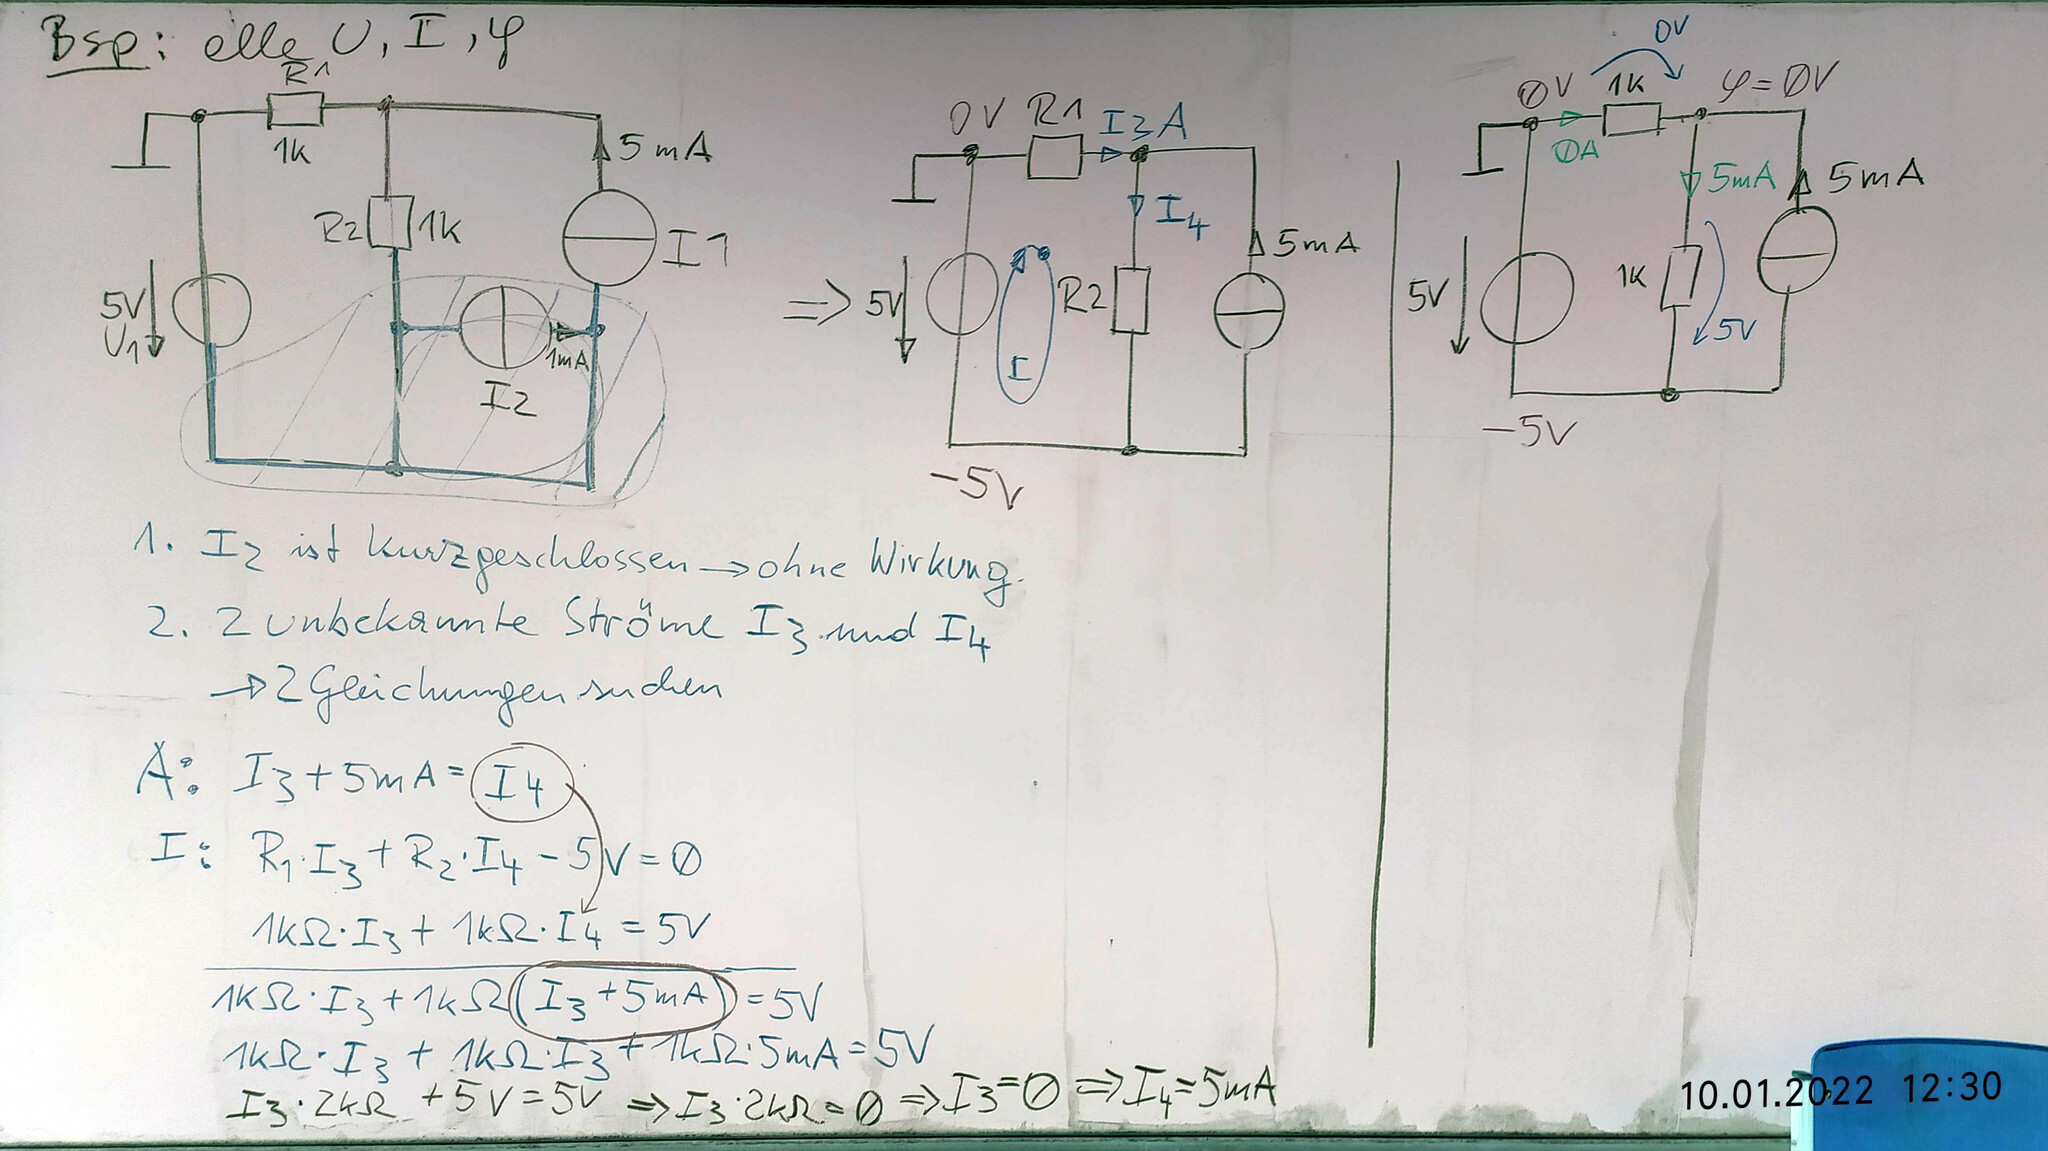 Bsp: alle U, I, φ
R1
1k
5mA
R2
1k
I1
5V
U1
1mA
I2
⇒
0V
R1
I3
A
I4
5mA
5V
I
R2
-5V
0V
∅V
1k
φ=∅V
∅A
5mA
5mA
5V
1k
5V
-5V
1. I2 ist kurzgeschlossen → ohne Wirkung.
2. 2 unbekannte Ströme I3 und I4
→ 2 Gleichungen suchen
A: I3 + 5mA = I4
I: R1·I3 + R2·I4 - 5V = ∅
1kΩ·I3 + 1kΩ·I4 = 5V
1kΩ·I3 + 1kΩ(I3 + 5mA) = 5V
1kΩ·I3 + 1kΩ·I3 + 1kΩ·5mA = 5V
I3·2kΩ + 5V = 5V ⇒ I3·2kΩ = ∅ ⇒ I3 = ∅ ⇒ I4 = 5mA
10.01.2022 12:30